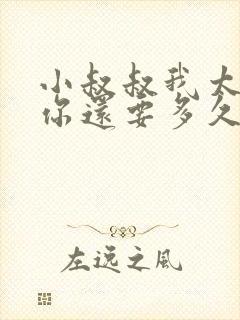 小叔叔我太
你還要多久
左远之風